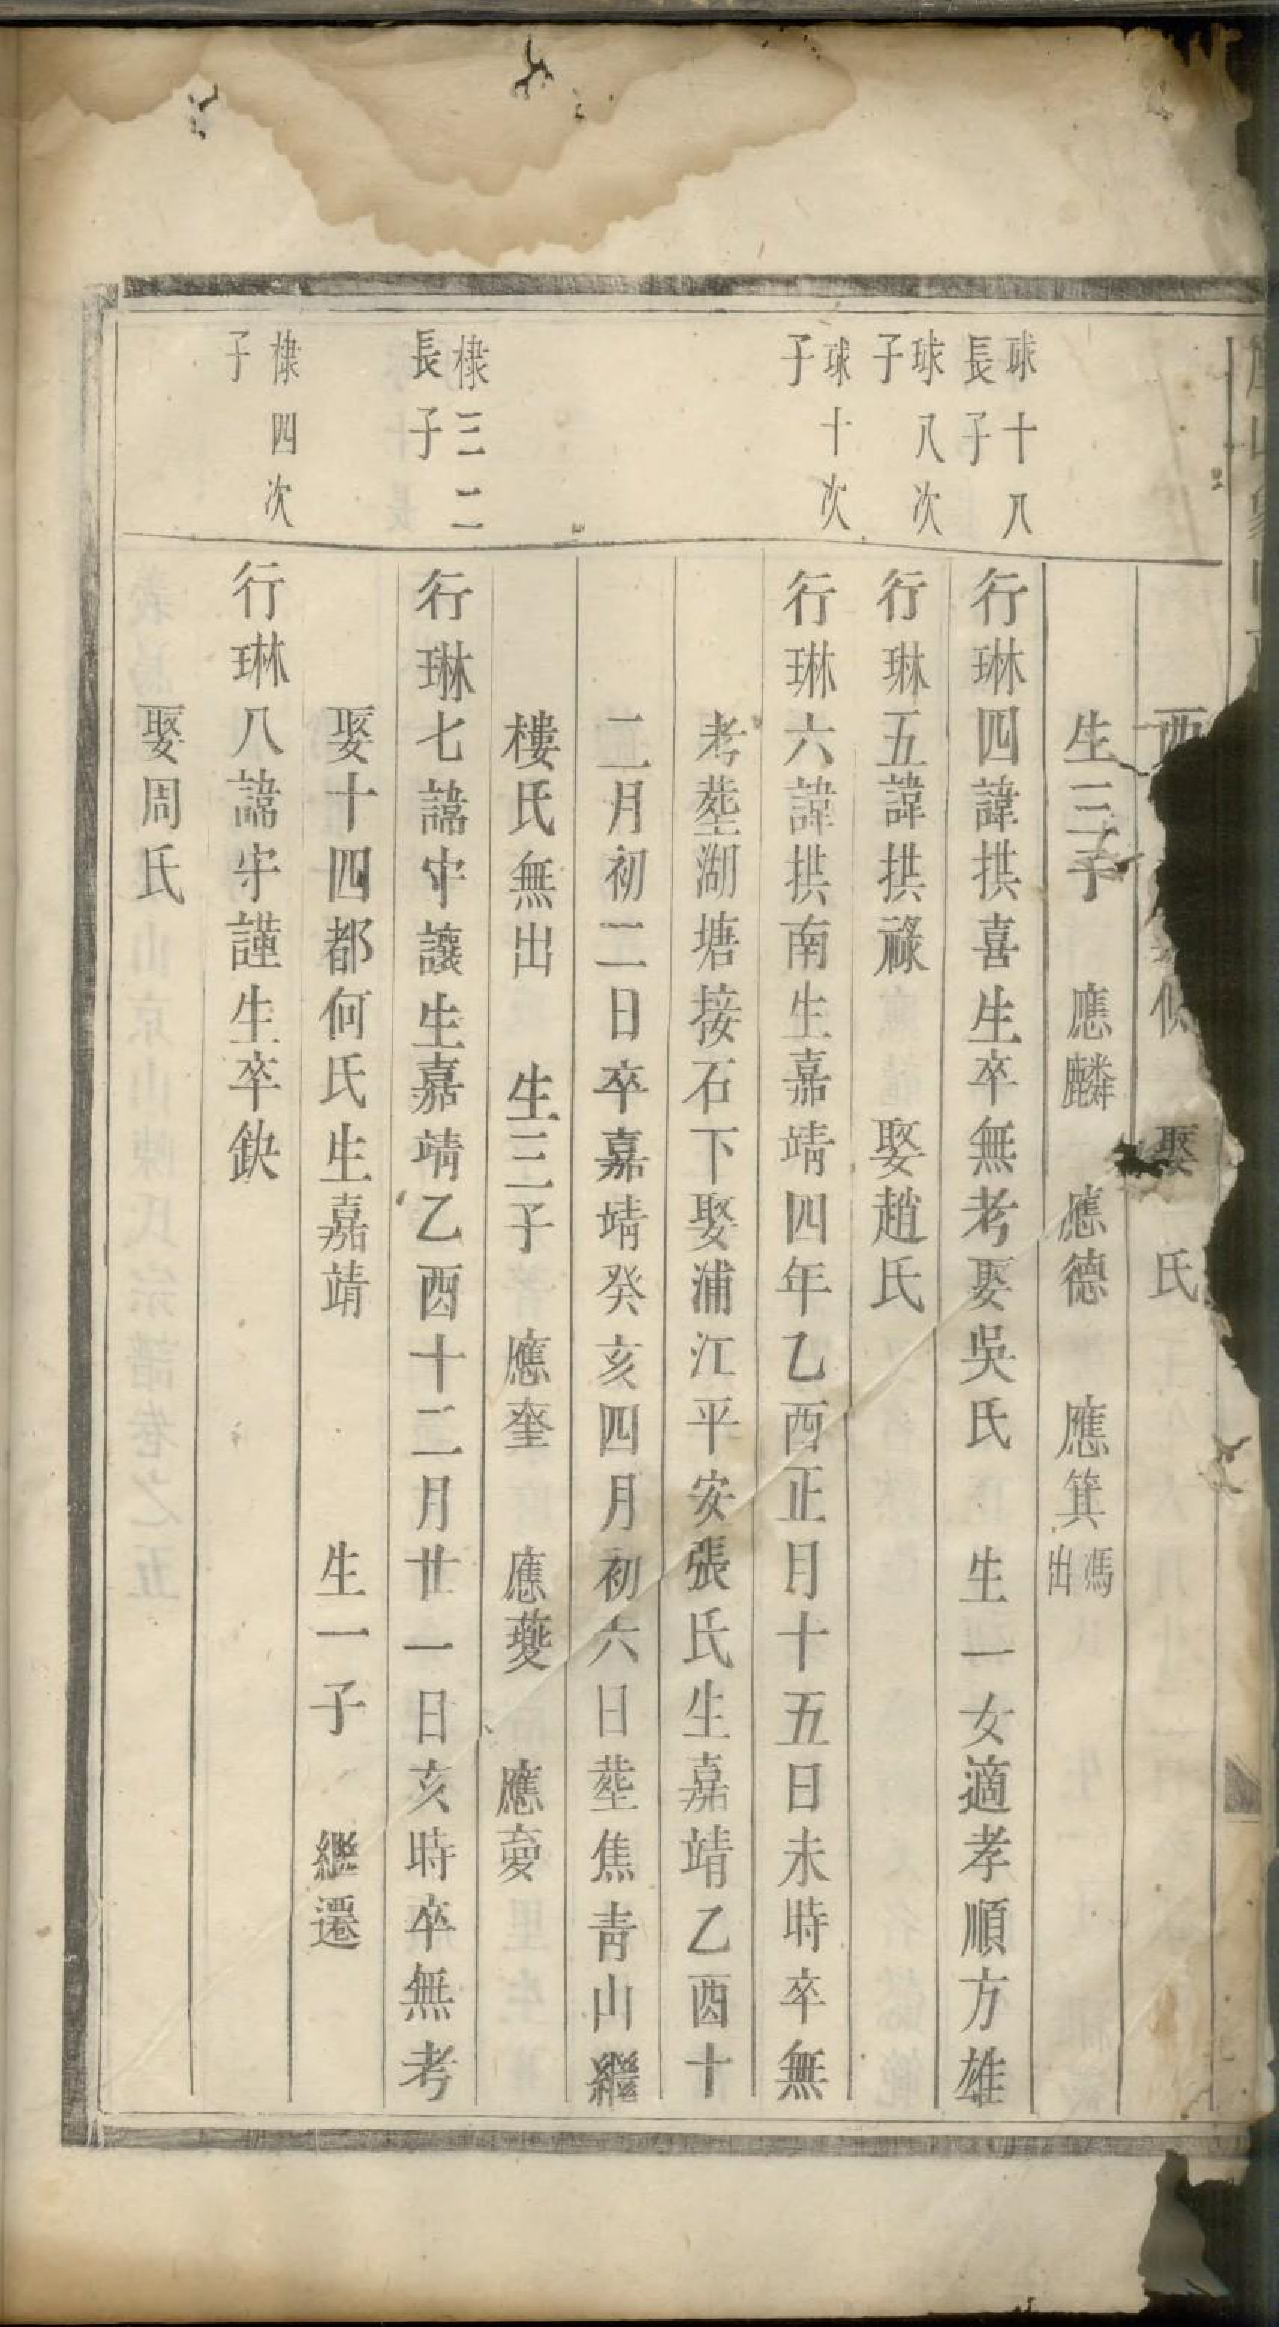 娶 氏
生三子 應麟 應德 應箕馮出
球十八長子
行琳四諱拱喜生卒無考娶吳氏 生一女適孝順方雄
球八次子
行琳五諱拱祿 娶趙氏
球十次子
行琳六諱拱南生嘉靖四年乙酉正月十五日未時卒無
考塟湖塘接石下娶浦江平安張氏生嘉靖乙酉十
二月初二日卒嘉靖癸亥四月初六日塟焦青山繼
樓氏無出 生三子 應奎 應夔 應夒
棣三二長子
行琳七諱守讓生嘉靖乙酉十二月廿一日亥時卒無考
娶十四都何氏生嘉靖 生一子 繼遷
棣四次子
行琳八諱守謹生卒缺
娶周氏